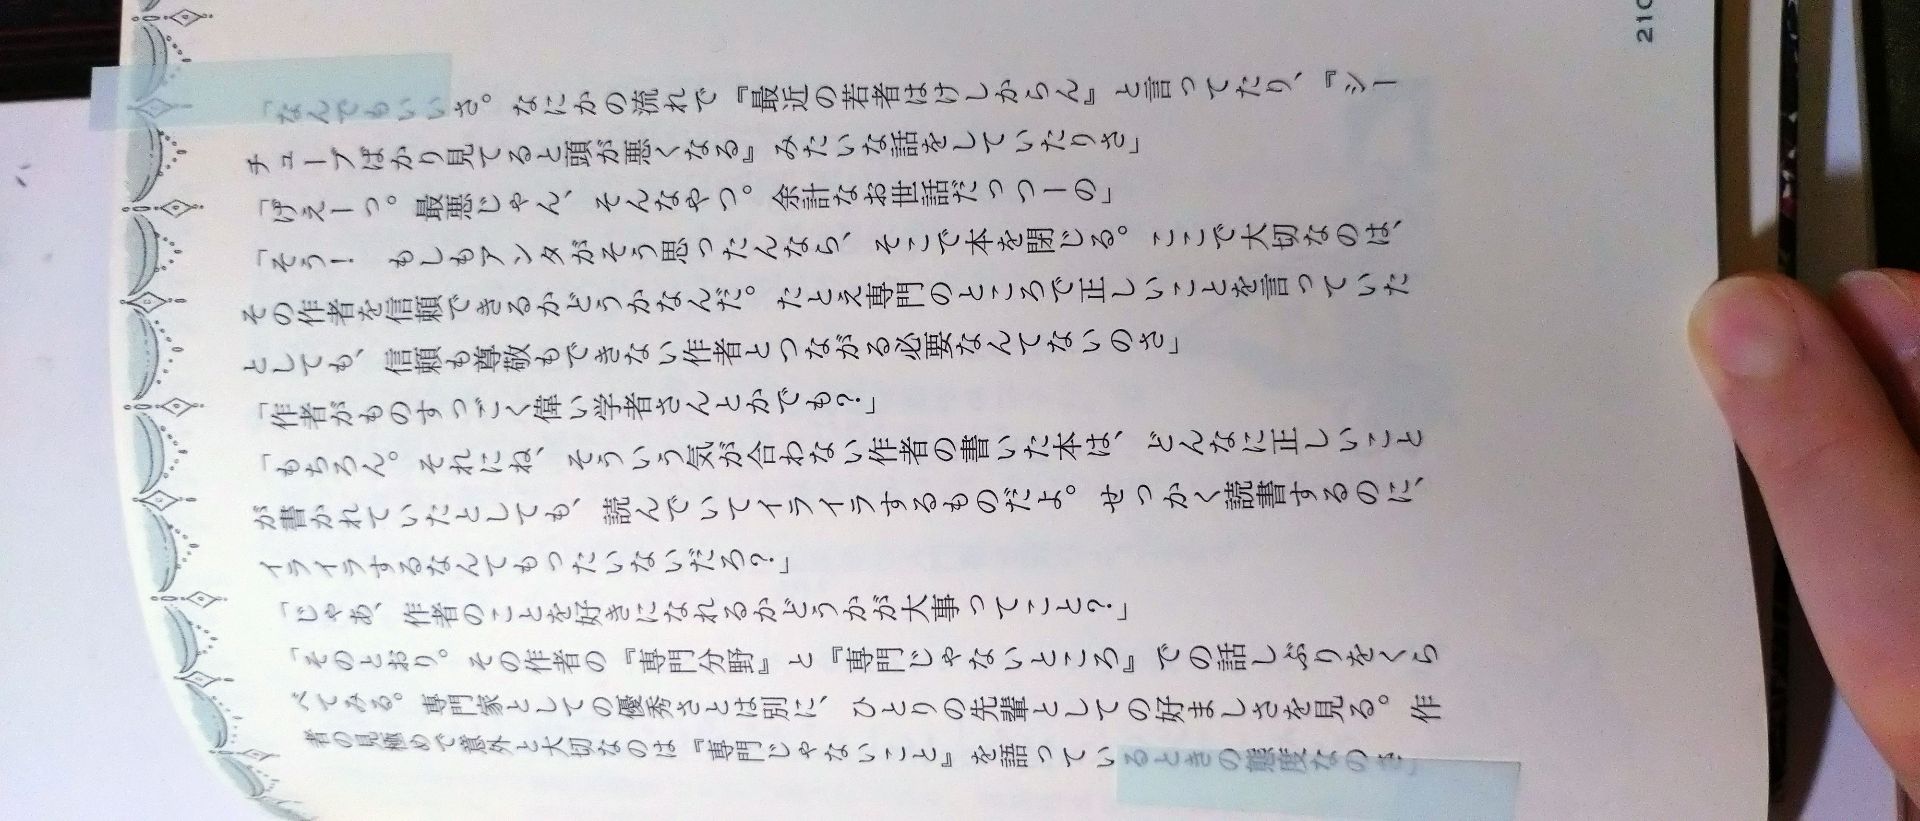 「なんでもいいさ。なにかの流れで『最近の若者はけしからん』と言ってたり、『シー
チューブばかり見てると頭が悪くなる』みたいな話をしていたりさ」
「げえーっ。最悪じゃん、そんなやつ。余計なお世話だっつーの」
「そう！　もしもアンタがそう思ったんなら、そこで本を閉じる。ここで大切なのは、
その作者を信頼できるかどうかなんだ。たとえ専門のところで正しいことを言っていた
としても、信頼も尊敬もできない作者とつながる必要なんてないのさ」
「作者がものすっごく偉い学者さんとかでも？」
「もちろん。それにね、そういう気が合わない作者の書いた本は、どんなに正しいこと
が書かれていたとしても、読んでいてイライラするものだよ。せっかく読書するのに、
イライラするなんてもったいないだろ？」
「じゃあ、作者のことを好きになれるかどうかが大事ってこと？」
「そのとおり。その作者の『専門分野』と『専門じゃないところ』での話しぶりをくら
べてみる。専門家としての優秀さとは別に、ひとりの先輩としての好ましさを見る。作
者の見極めで意外と大切なのは『専門じゃないこと』を語っているときの態度なのさ」
210